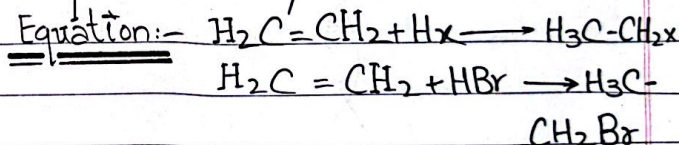 Equation:- H2C=CH2+Hx⟶H3C-CH2x
H2C = CH2 +HBr ⟶H3C-
CH2 Br